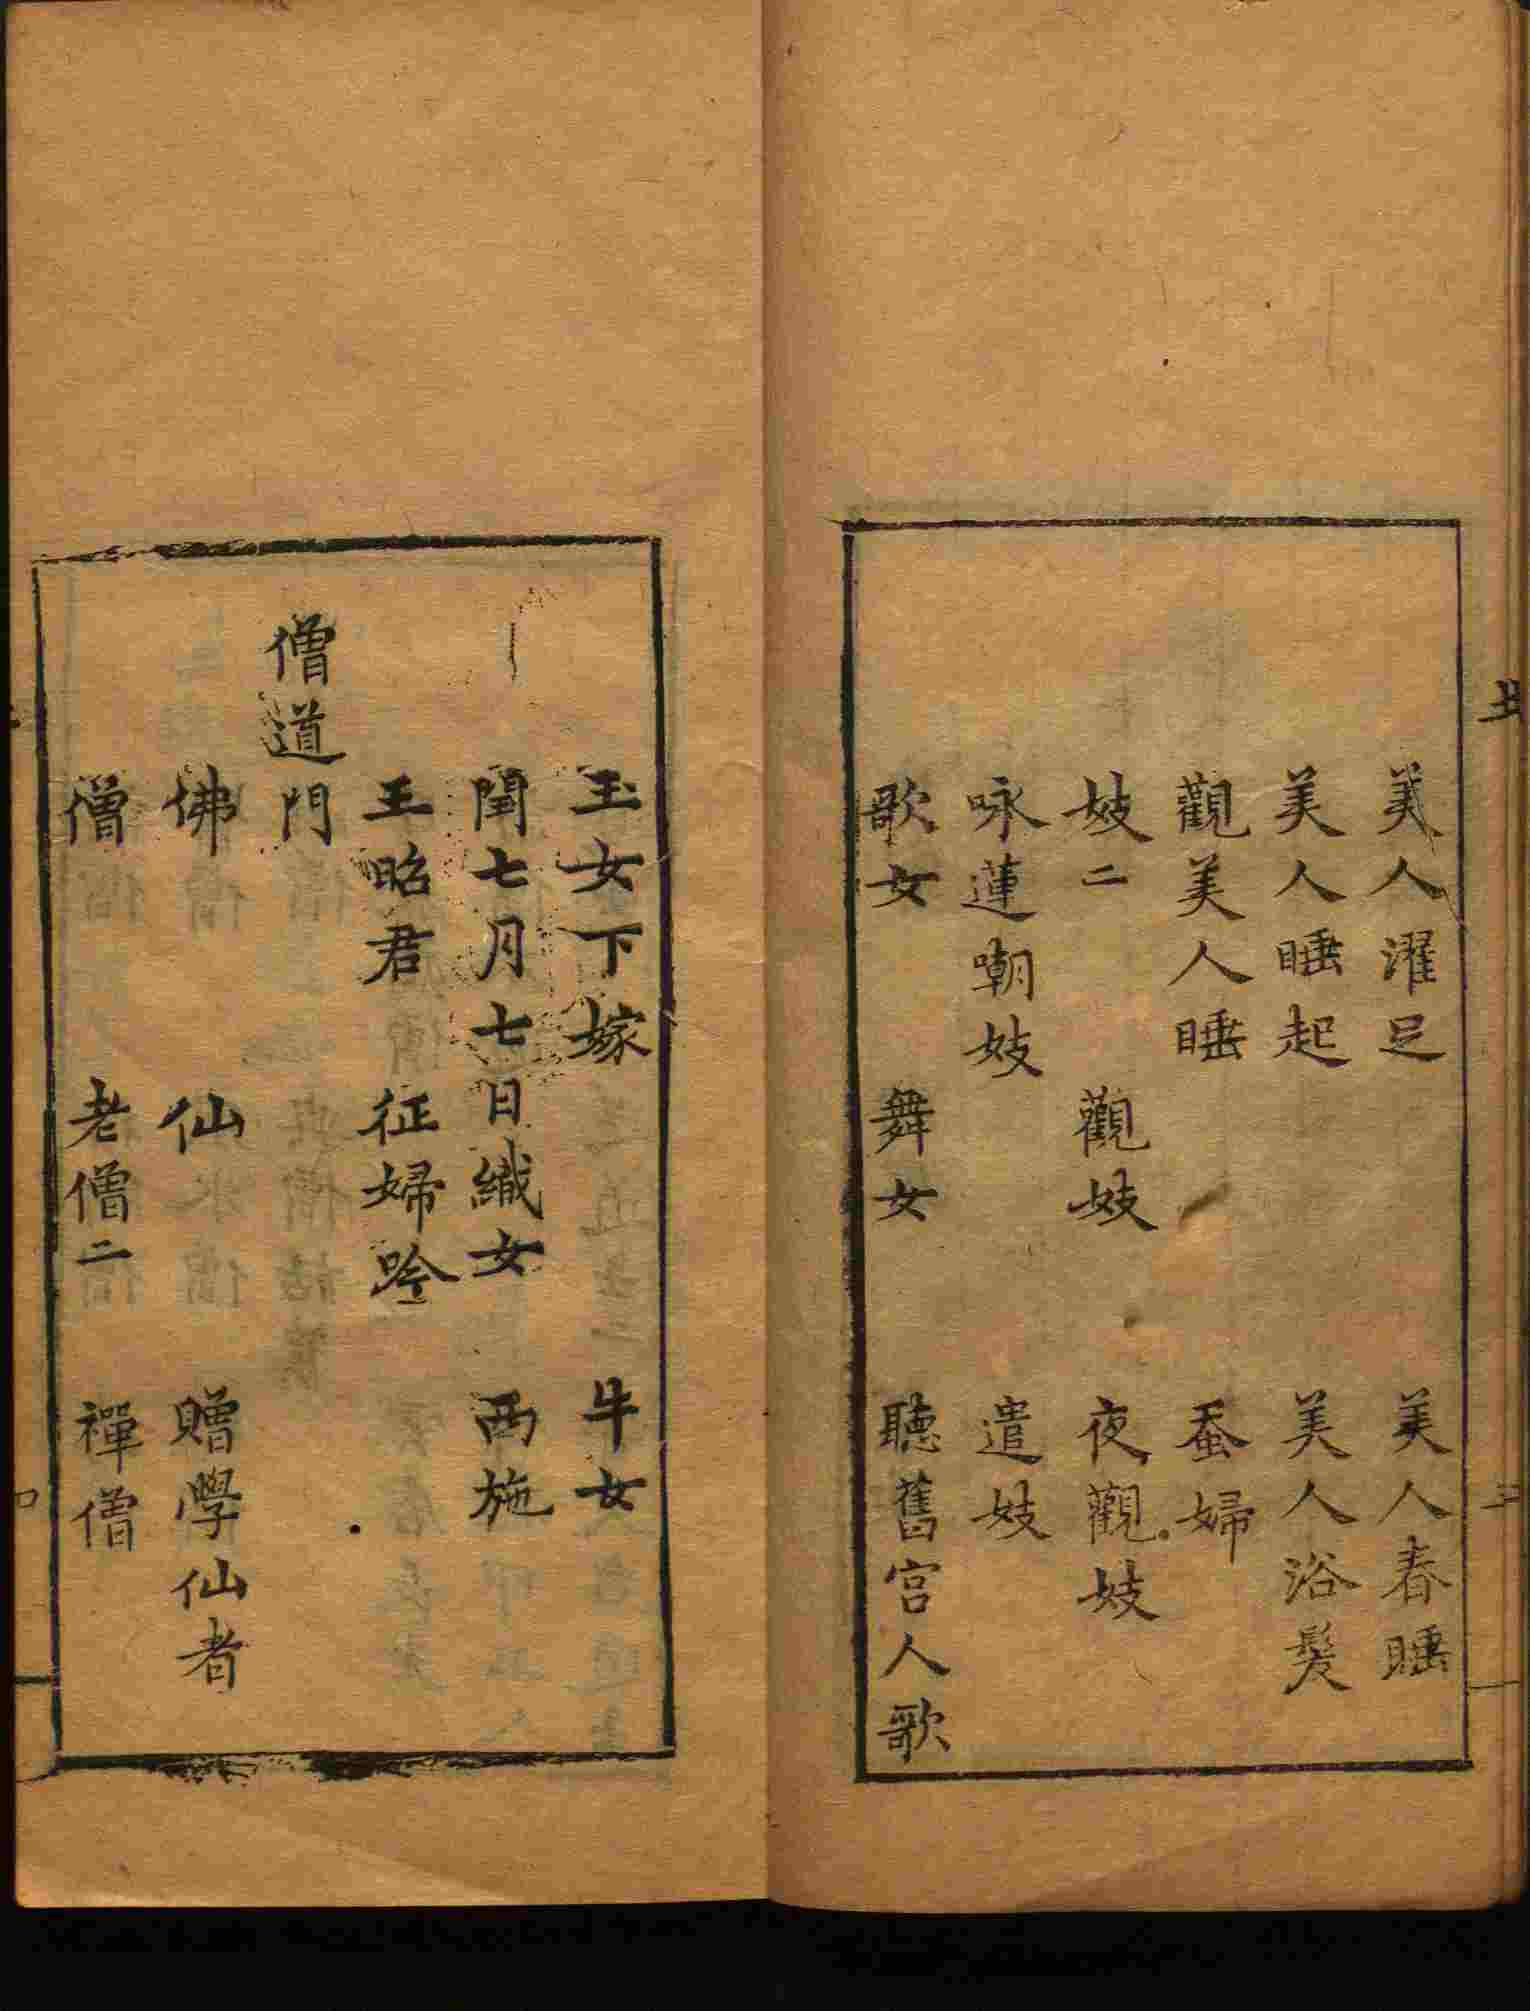 美人濯足　美人春睡
美人睡起　美人浴髮
觀美人睡　蚕婦
妓二　觀妓　夜觀妓
咏蓮嘲妓　遣妓
歌女　舞女　聽舊宫人歌
玉女下嫁　牛女
閏七月七日織女　西施
王昭君　征婦吟
僧道門
佛　仙　贈學仙者
僧　老僧二　禪僧